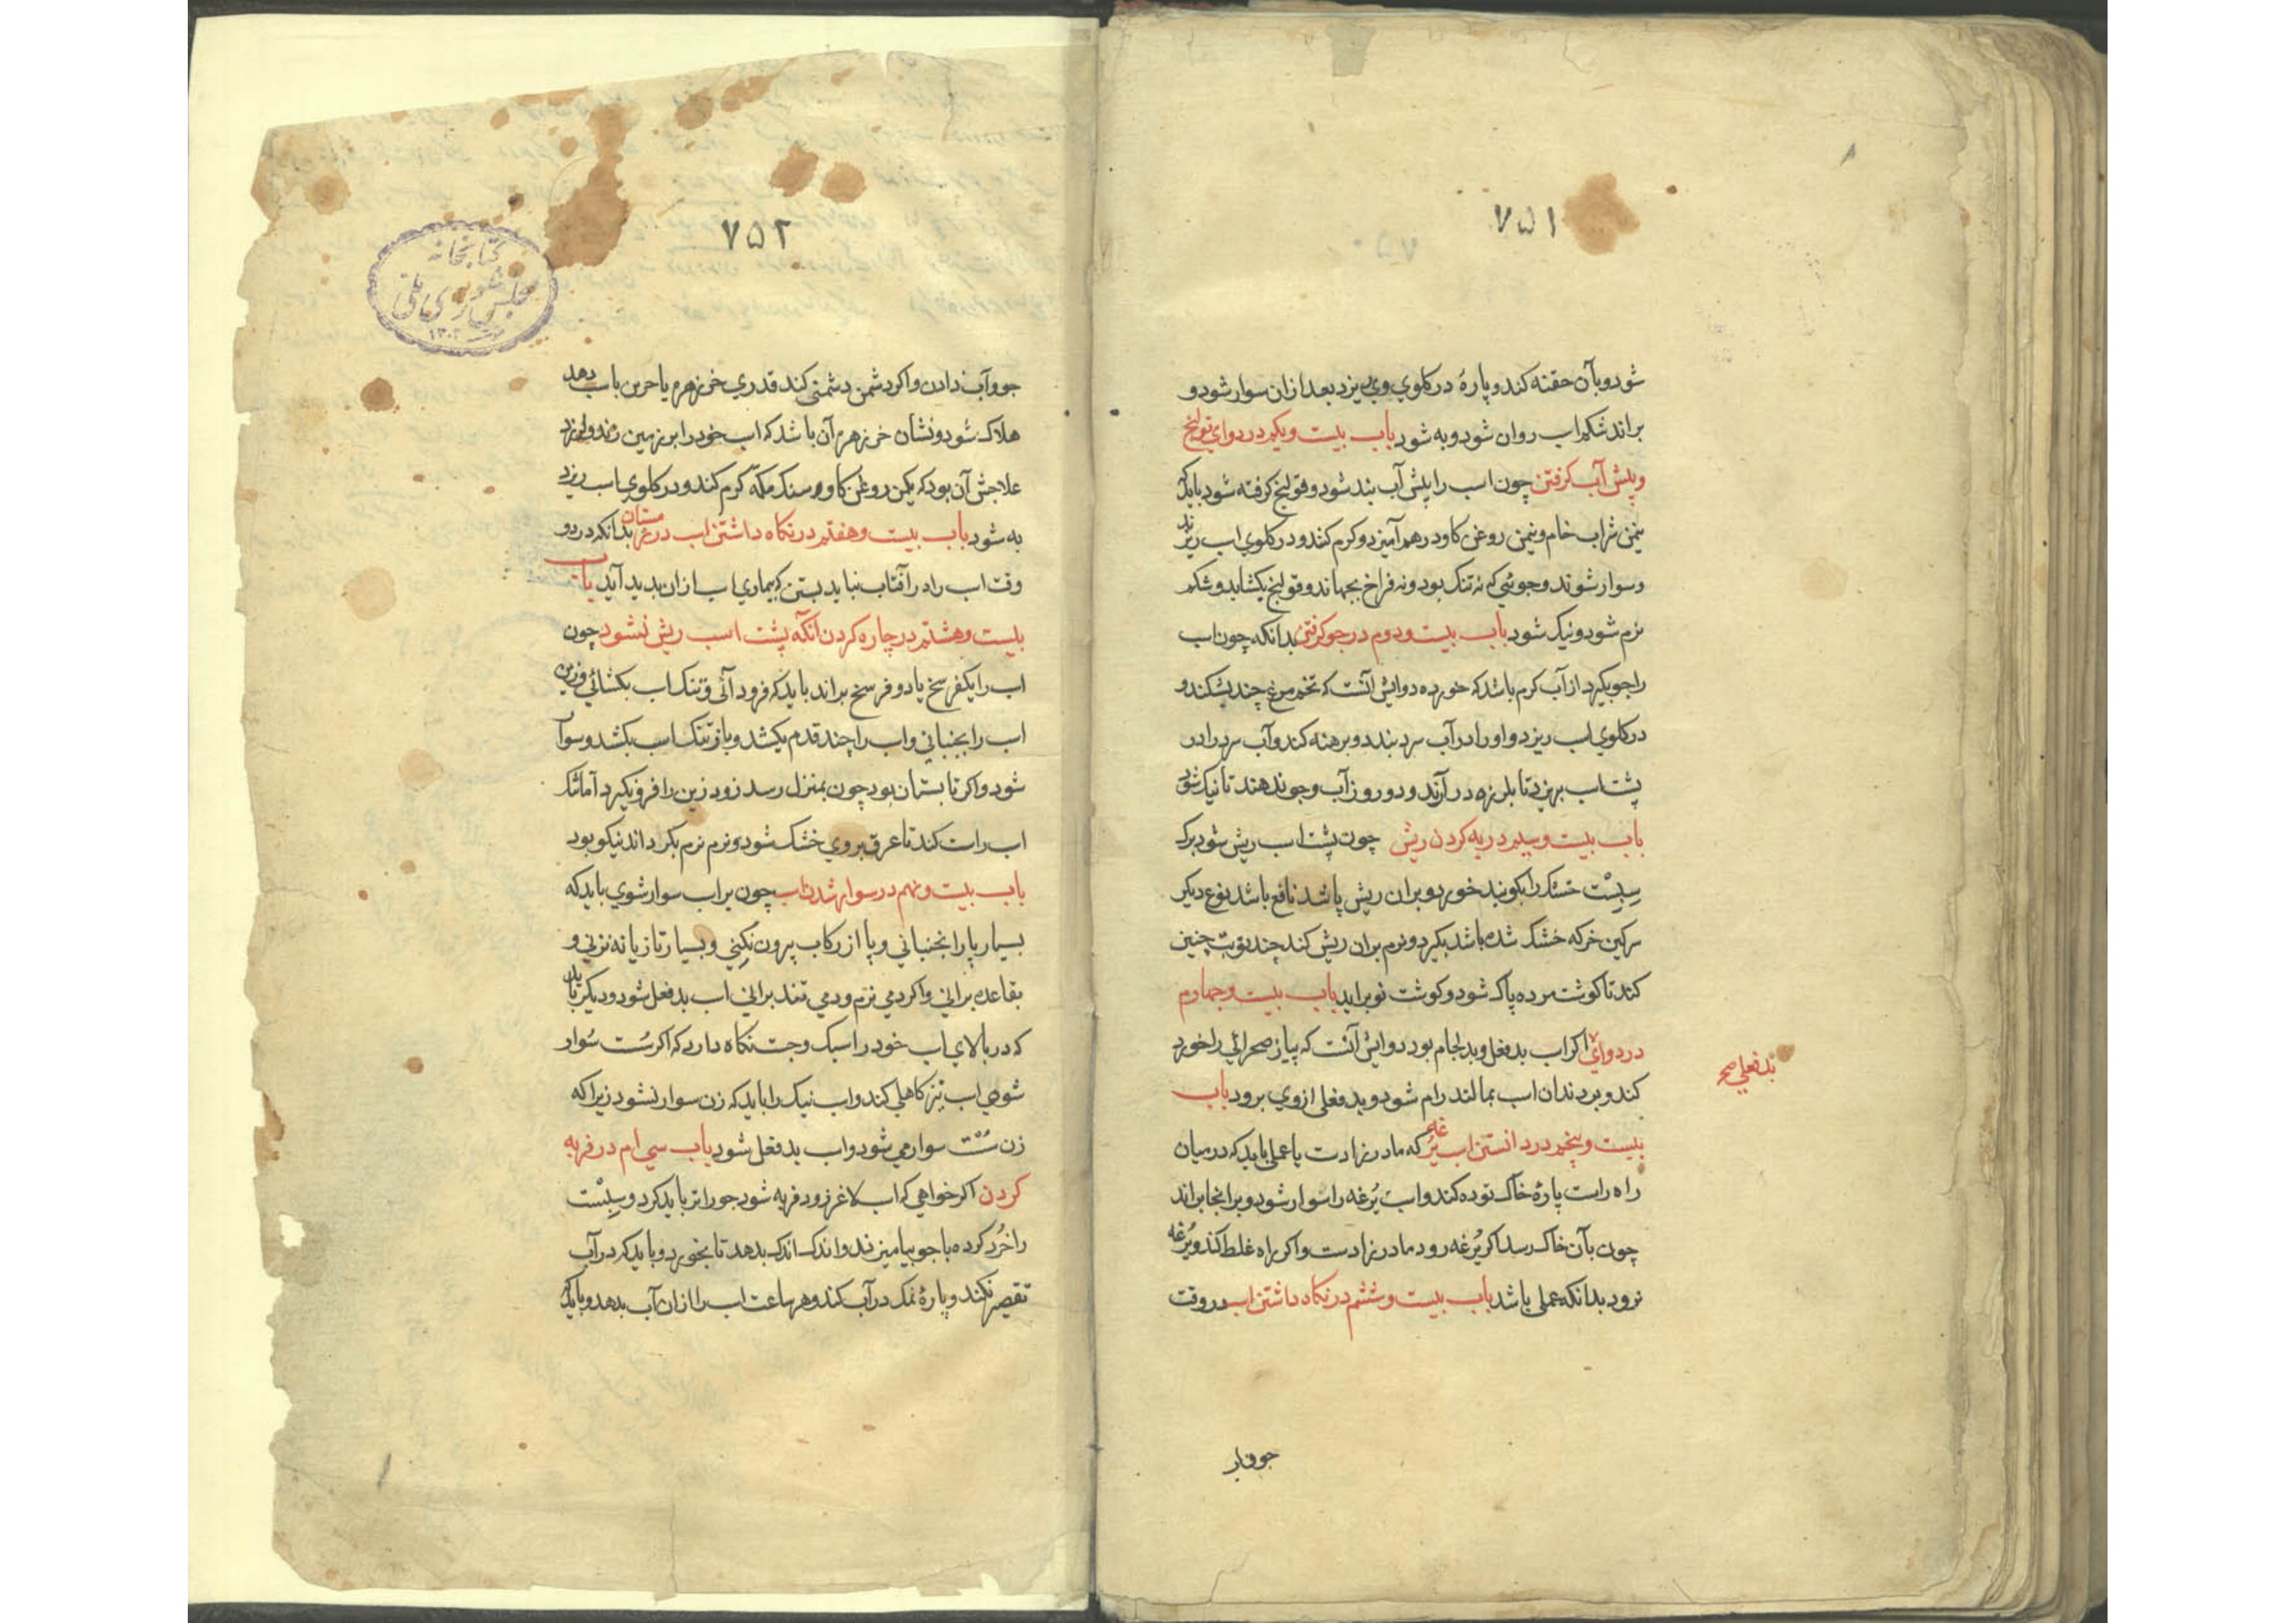 ۷۵۱
شود و بآن حقنه کند و پارهٔ در کلوی وی ریزد بعد ازان سوار شود و
براند شکم اسب روان شود و به شود باب بیست و یکم در دوای قولنج
و پیش آب کرفتن چون اسب را پیش آب بند شود و قولنج کرفته شود باید که
نیمن شراب خام و نیمن روغن کاو در هم آمیزد و کرم کنند و در کلوی اسب ریزند
و سوار شوند و جوئی که نه تنک بود و نه فراخ بجهاند و قولنج بکشاید و شکم
نرم شود و نیک شود باب بیست و دوم در جو کرفتن بدانکه چون اسب
را جو بکیرد از آب کرم باشد که خورده دوایش آنست که تخم مرغ چند بشکند و
در کلوی اسب ریزد و او را در آب سرد بندد و برهنه کند و آب سرد را در
پشت اسب بریزد تا بلرزه در آرند و دو روز آب و جو ندهند تا نیک شود
باب بیست و سیم در به کردن ریش چون پشت اسب ریش شود برک
سپست خشک را بکوبند خورد و بران ریش پاشد نافع باشد نوع دیکر
سرکین خر که خشک شده باشد بکیرد و نرم بران ریش کند چند نوبت چنین
کند تا کوشت مرده پاک شود و کوشت نو براید باب بیست و چهارم
در دوای اکر اسب بدفعل و بدلجام بود دوایش آنست که پیاز صحرائی را خورد
بدفعلی صح
کند و بر دندان اسب بمالند رام شود و بدفعلی از وی برود باب
بیست و پنجم در دانستن اسب یرغه که مادرزادست یا عملی باید که در میان
راه راست پارهٔ خاک توده کند و اسب یرغه را سوار شود و بر انجا براند
چون بآن خاک رسد اکر یرغه رود مادرزادست و اکر راه غلط کند و یرغه
نرود بدانکه عملی باشد باب بیست و ششم در نکاه داشتن اسب در وقت
جو و اب
۷۵۲
کتابخانه
مجلس شورای ملی
۱۳۰۲
جو و آب دادن و اکر دشمن دشمنی کند قدری خرزهره یا باسب دهد
هلاک شود و نشان خرزهره آن باشد که اسب خود را بر زمین زند و لرزد
علاجش آن بود که یکمن روغن کاو و سنک مکه کرم کند و در کلوی اسب ریزد
به شود باب بیست و هفتم در نکاه داشتن اسب در زمستان بدانکه در دو
وقت اسب را در آفتاب نباید بستن که بیماری اسب ازان بدید آید باب
بیست و هشتم در چاره کردن انکه پشت اسب ریش نشود چون
اسب را یکفرسخ یا دو فرسخ براند باید که فرود آئی و تنک اسب بکشائی و زین
اسب را بجنبانی و اسب را چند قدم بکشد و باز تنک اسب بکشد و سوار
شود و اکر تابستان بود چون بمنزل رسد زود زین را فرونکیرد اما تنک
اسب راست کند تا عرق بروی خشک شود و نرم نرم بکرداند نیکو بود
باب بیست و نهم در سوار شدن اسب چون بر اسب سوار شوی باید که
بسیار پا را نجنبانی و پا از رکاب بیرون نکنی و بسیار تازیانه نزنی و
بقاعده برانی و اکر دمی نرم و دمی تند برانی اسب بدفعل شود و دیکر باید
که در بالای اسب خود را سبک و جست نکاه دارد که اکر سست سوار
شوی اسب نیز کاهلی کند و اسب نیک را باید که زن سوار نشود زیرا که
زن سست سوار می شود و اسب بدفعل شود باب سی ام در فربه
کردن اکر خواهی که اسب لاغر زود فربه شود جو را تر باید کرد و سپست
را خرد کرده با جو بیامیزند و اندک اندک بدهد تا بخورد و باید که در آب
تقصیر نکند و پارهٔ نمک در آب کند و هر ساعت اسب را ازان آب بدهد و باید که